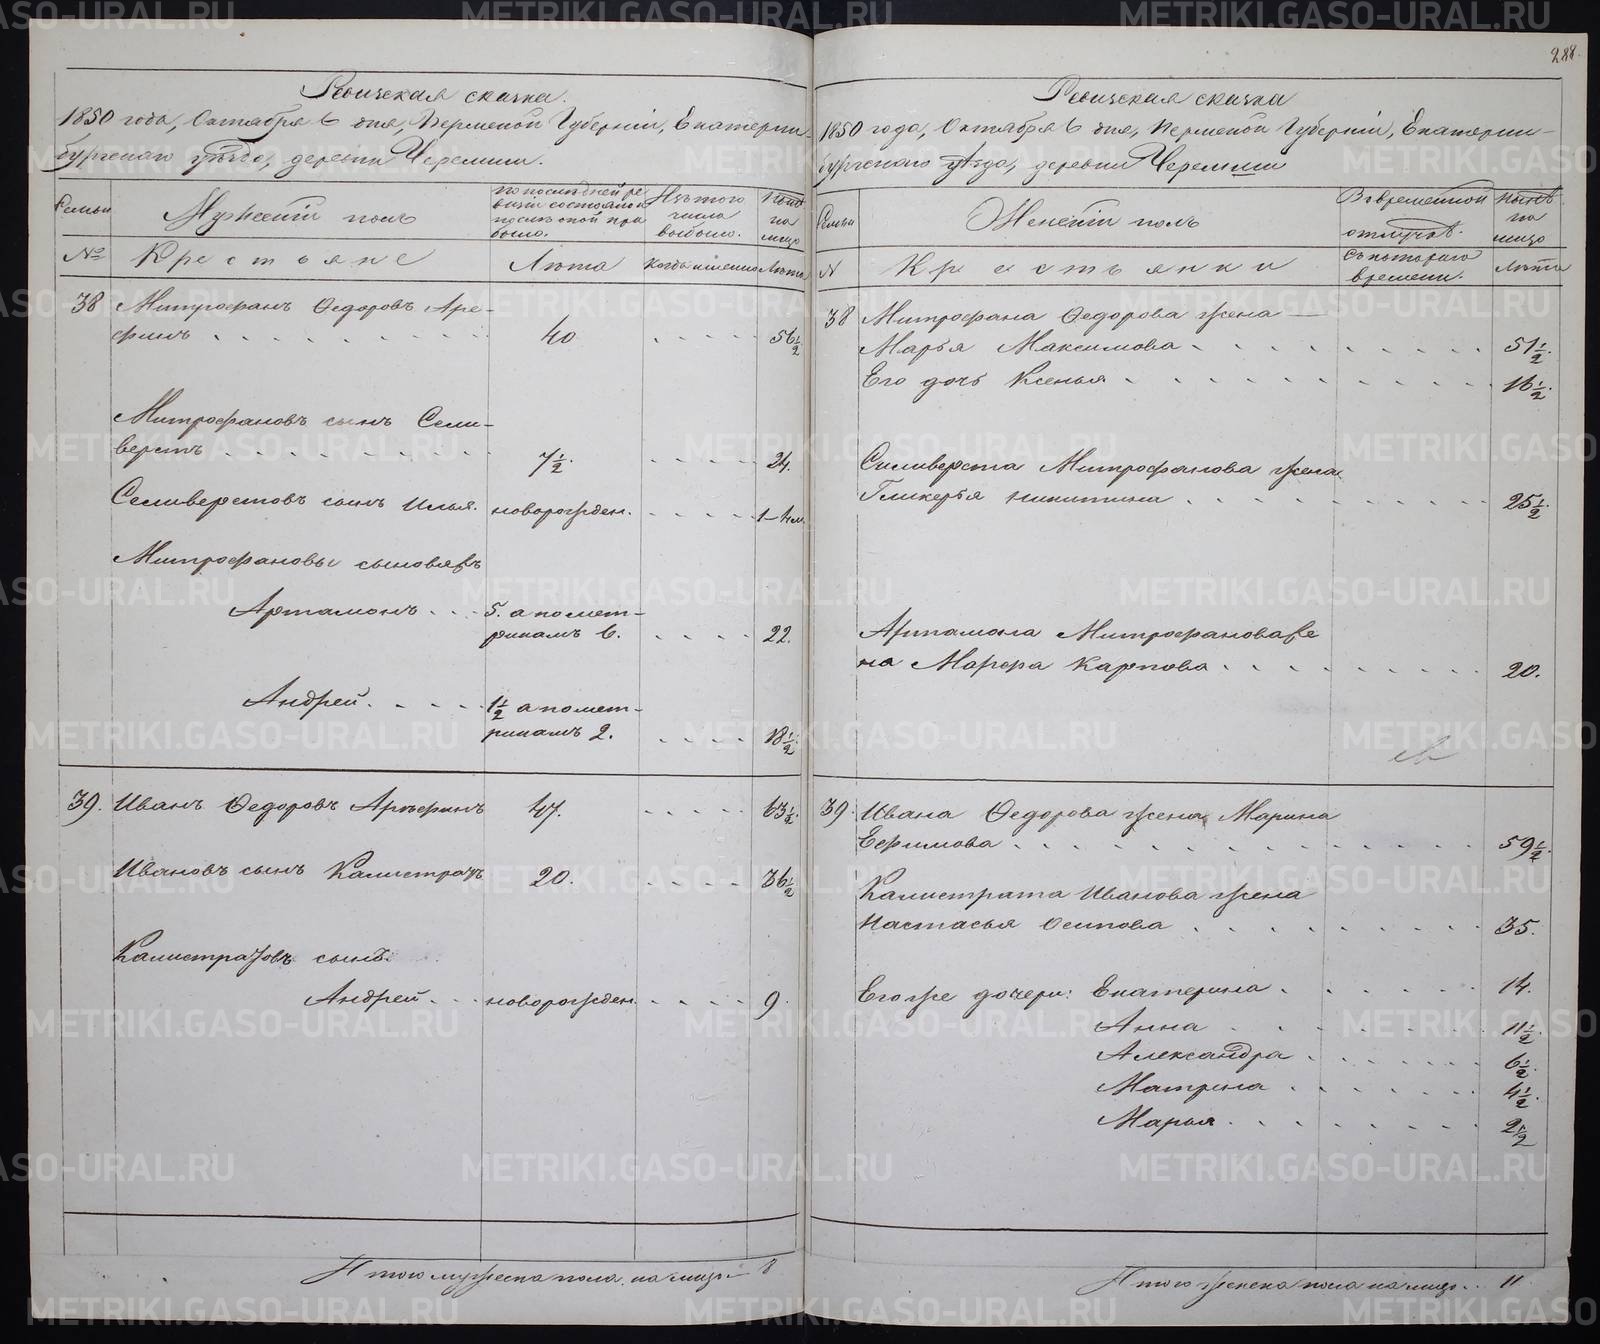 288.
Ревизская сказка.
1850 года, Октября 6 дня, Пермской Губернии, Екатерин-
бургскаго уѣзда, деревни Черемши.
Семьи
Мужескій полъ
по послѣдней ре
визіи состояло и
послѣ оной при
было.
Изъ того
числа
выбыло.
Нынѣ
на
лицо
№
Крестьяне
Лѣта
Когда именно
Лѣта
38 Митрофанъ Ѳедоровъ Аре-
финъ . . . 40 . . . 56½
Митрофановъ сынъ Сели-
верстъ . . . 7½. . . . 24.
Селиверстовъ сынъ Илья. новорожден. . . . 1–4 м.
Митрофановы сыновья
Артамонъ . . . 5. а по мет-
рикамъ 6. . . . 22.
Андрей. . . . 1½ а по мет-
рикамъ 2. . . . 18½.
39. Иванъ Ѳедоровъ Арефинъ 47. . . . 63½.
Ивановъ сынъ Калистратъ 20. . . . 36½
Калистратовъ сынъ:
Андрей. . . новорожден. . . . 9.
Итого мужеска пола на лицо 8
Ревизская сказка
1850 года, Октября 6 дня, Пермской Губерніи, Екатерин-
бургскаго уѣзда, деревни Черемши
Семьи
Женскій полъ
Во временной
отлучкѣ.
Нынѣ
на
лицо
N
Крестьянки
Съ котораго
времени.
Лѣта
38 Митрофана Ѳедорова жена —
Марья Максимова . . . 51½.
Его дочь Ксенья . . . 16½.
Силиверста Митрофанова жена
Гликерья Никитина . . . 25½.
Артамона Митрофанова же
на Марфа Карпова . . . 20.
39. Ивана Ѳедорова жена Марина
Ефимова . . . 59½.
Калистрата Иванова жена
Настасья Осипова . . . 35.
Его же дочери: Екатерина . . . 14.
Анна . . . 11½.
Александра . . . 6½.
Матрена . . . 4½.
Марья . . . 2½
Итого женска пола на лицо . . 11
METRIKI.GASO-URAL.RU